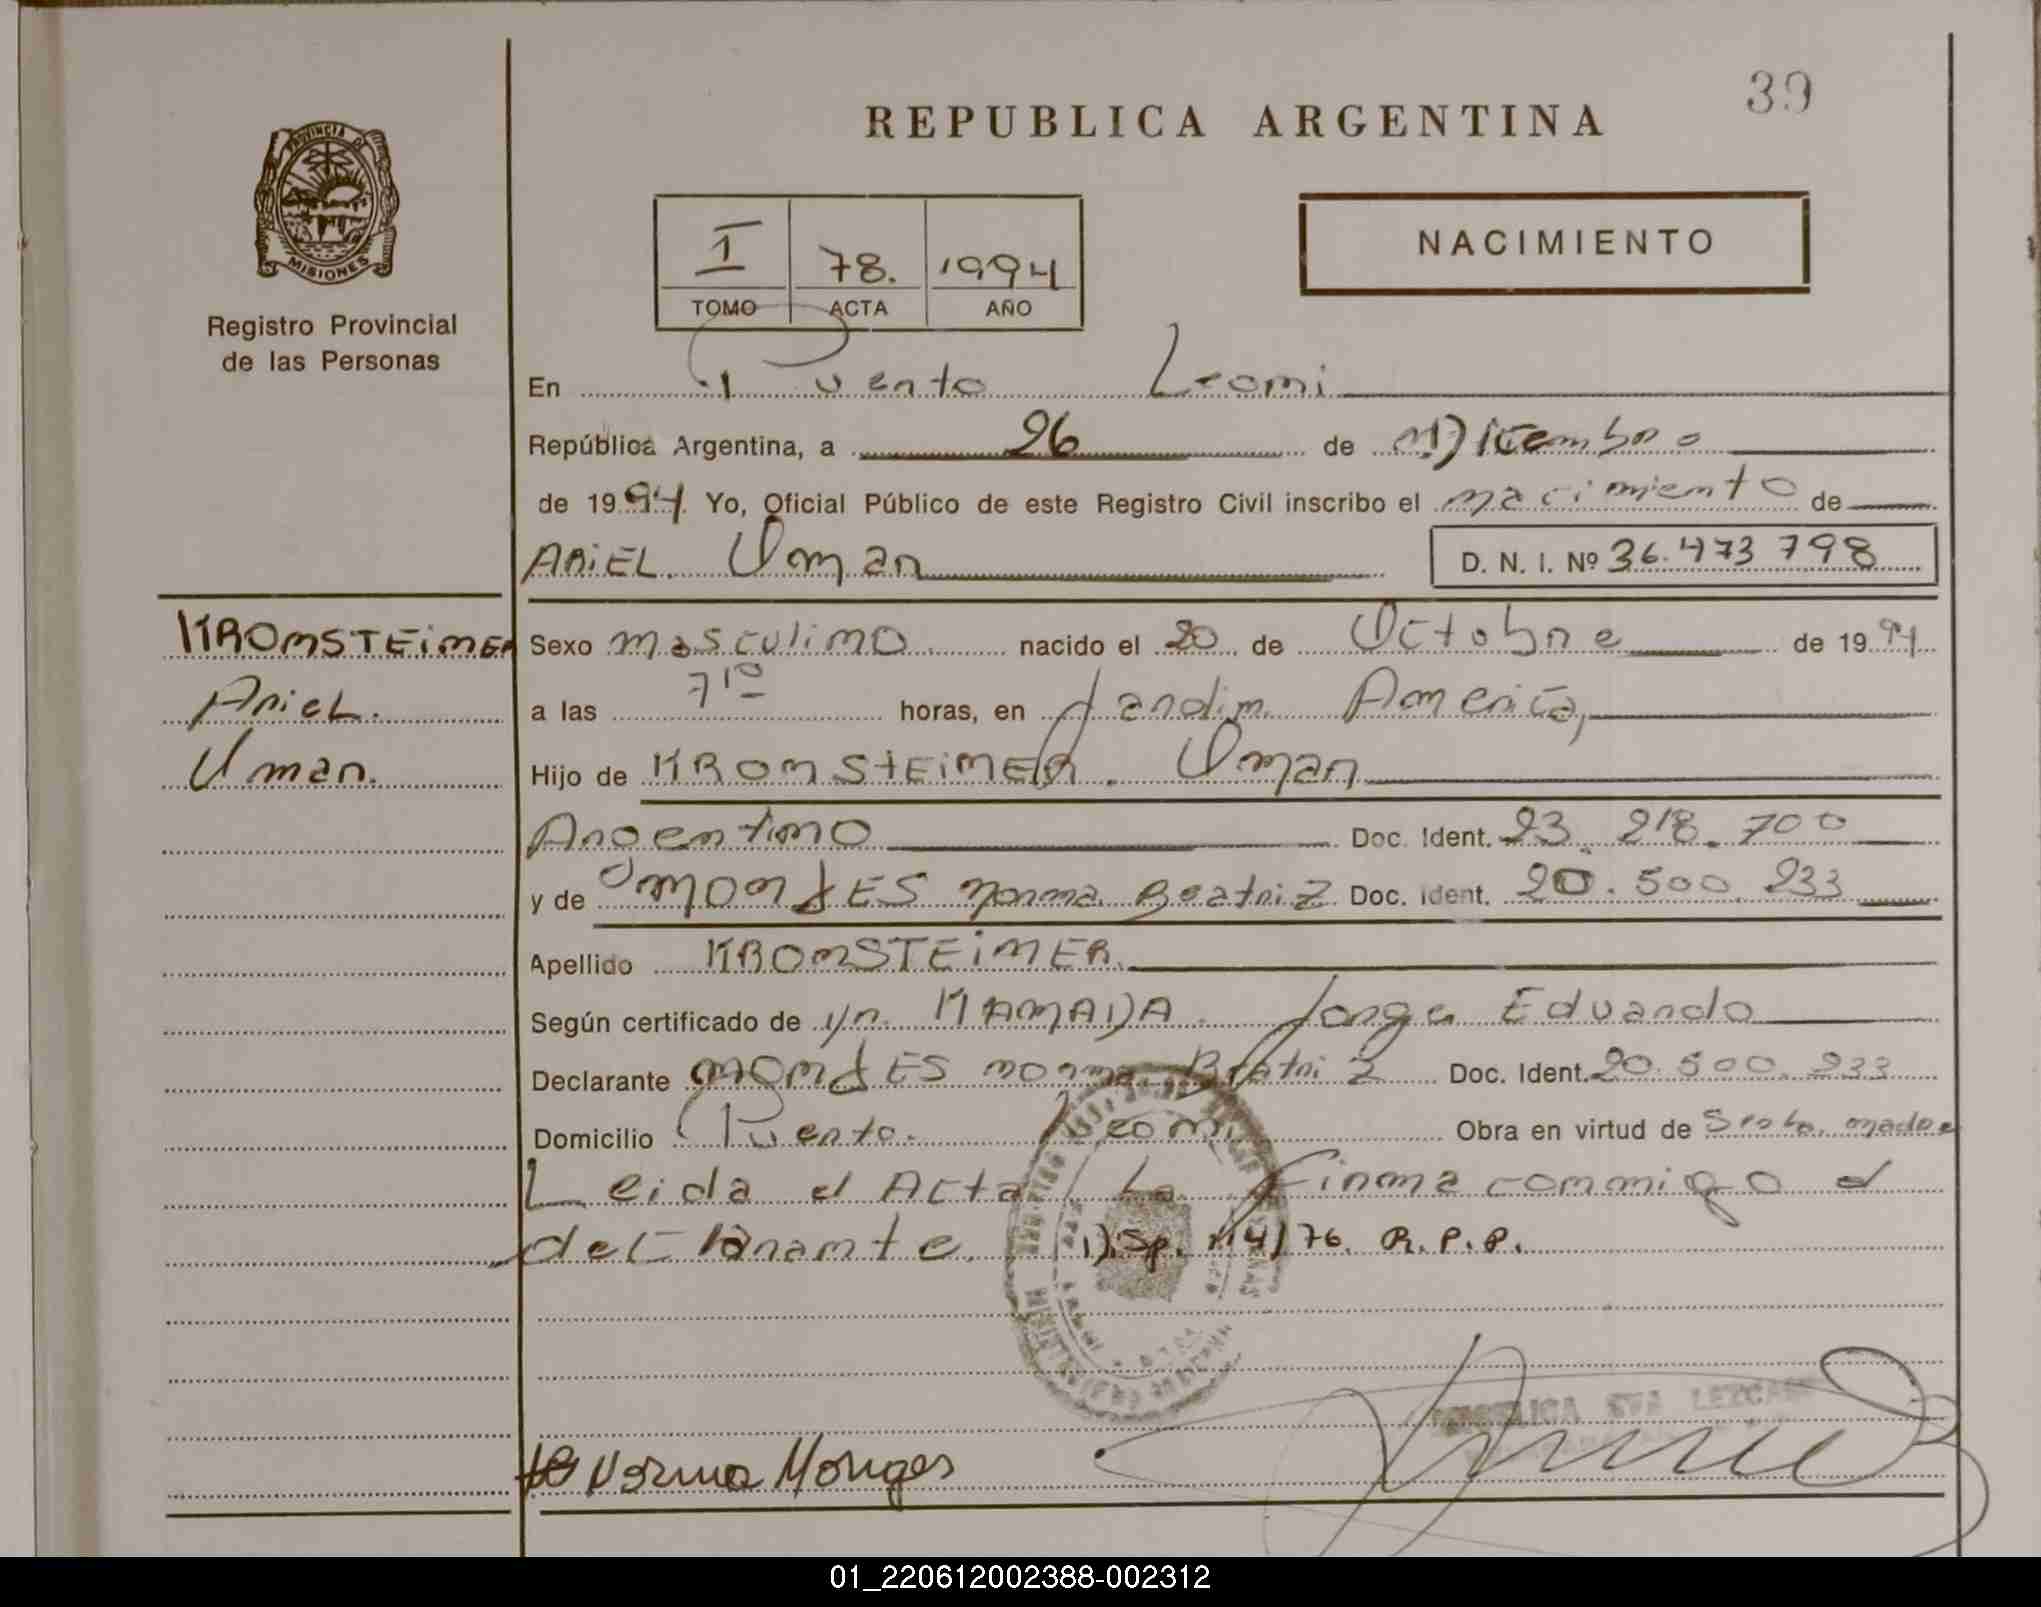 39
REPUBLICA ARGENTINA
PROVINCIA DE
MISIONES
Registro Provincial
de las Personas
I 78. 1994
TOMO ACTA AÑO
NACIMIENTO
En Puerto Leoni
República Argentina, a 26 de Diciembre
de 1994. Yo, Oficial Público de este Registro Civil inscribo el nacimiento de
ARIEL Uman
D. N. I. Nº 36.473 798
KRONSTEINER
Ariel.
Uman.
Sexo masculino nacido el 20 de Octubre de 1994
a las 7 10 horas, en Jardin America,
Hijo de KRONSTEINER. Uman
Argentino Doc. Ident. 23.218.700
y de MONJES Norma Beatriz Doc. Ident. 20.500.233
Apellido KRONSTEINER.
Según certificado de KAMADA Jorge Eduardo
Declarante MONJES Norma Beatriz Doc. Ident. 20.500.233
Domicilio Puerto Leoni Obra en virtud de madre
Leida el Acta La firma conmigo el
declarante. Disp. 114/76. R.P.P.
EVA LEZCANO
Norma Monges
01_220612002388-002312